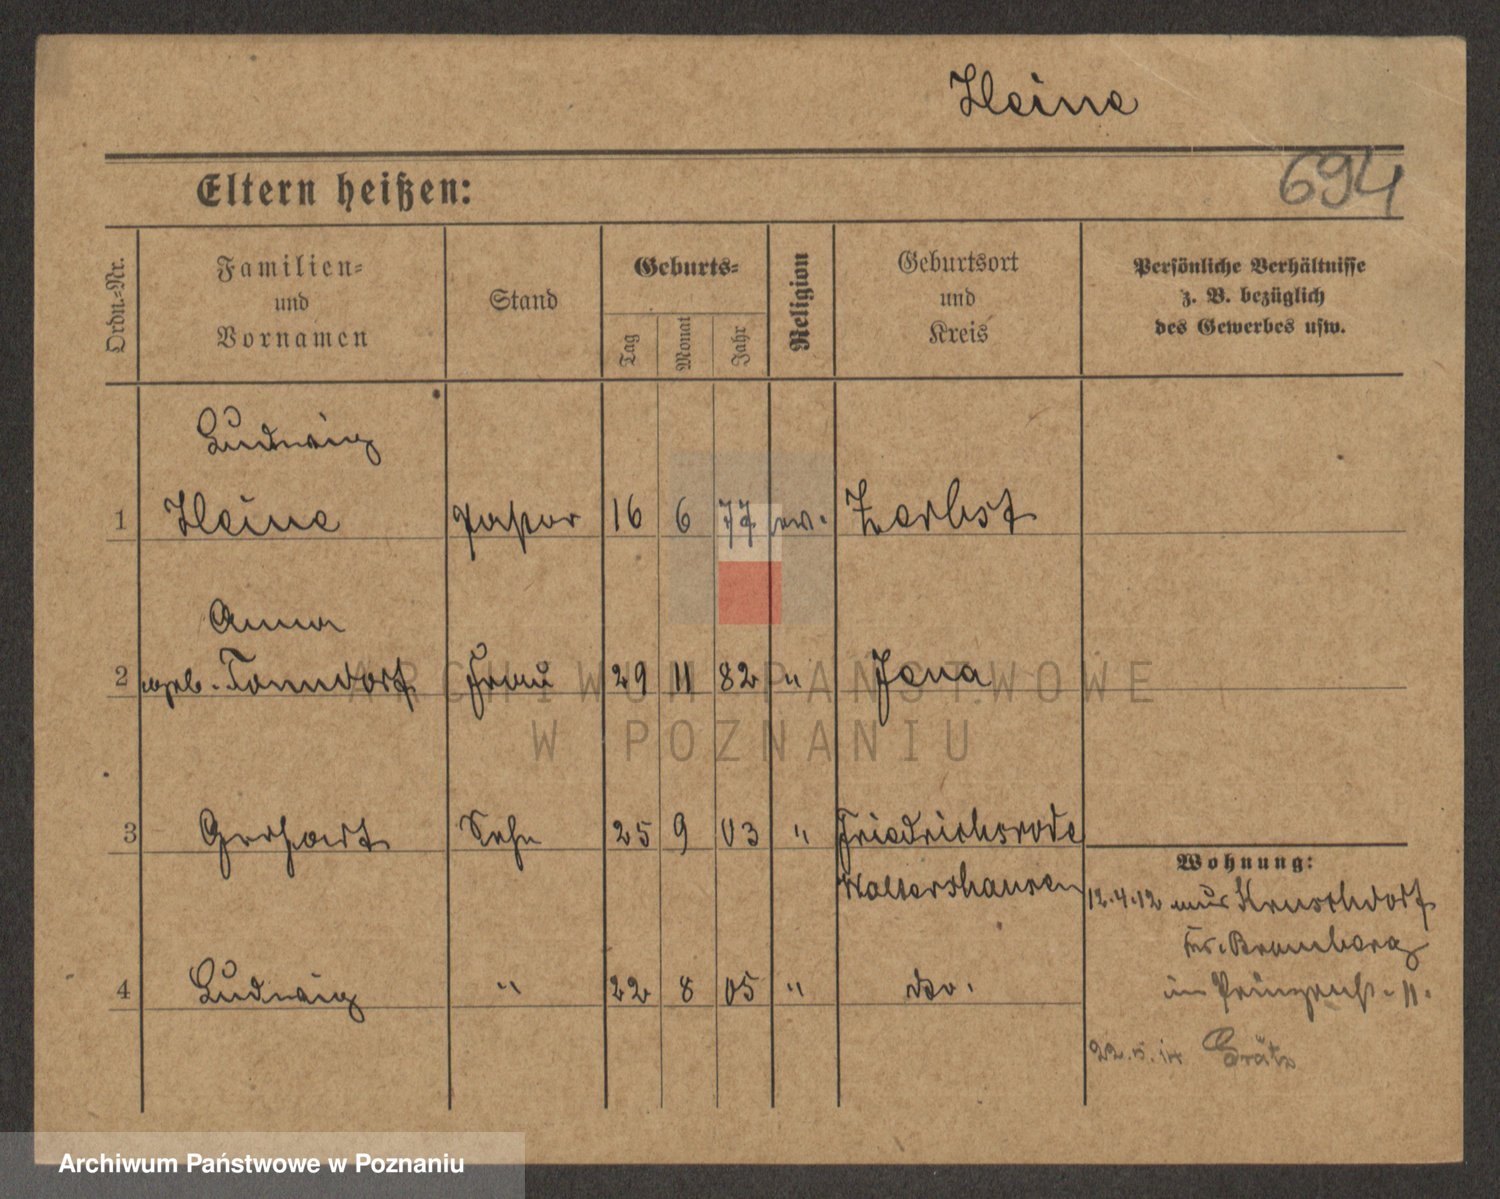 Heine
694
Eltern heißen:
Ordn.=Nr.
Familien=
und
Vornamen
Stand
Geburts=
Tag
Monat
Jahr
Religion
Geburtsort
und
Kreis
Persönliche Verhältnisse
z. B. bezüglich
des Gewerbes usw.
Ludwig
1 Heine Pastor 16 6 77 ev. Zerbst
Anna
2 geb. Tonndorf Frau 29 11 82 " Jena
3 Gerhart Sohn 25 9 03 " Friedrichsrode
Waltershausen
4 Ludwig " 22 8 05 " do.
Wohnung:
12.4.12 aus
Kr. Bromberg
in Prinzenst. 11.
22.5.14 Grätz
ARCHIWUM PAŃSTWOWE
W POZNANIU
Archiwum Państwowe w Poznaniu